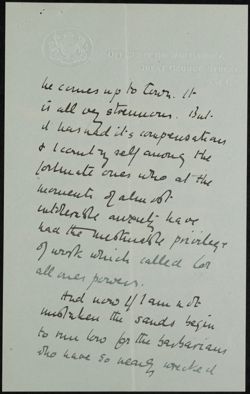 he comes up to town. It
is all very strenuous. But
it has had its compensations
& I count myself among the
fortunate ones who at the
moments of almost
intolerable anxiety have
had the inestimable privilege
of work which called for
all ones powers.
And now if I am not
mistaken the sands begin
to run low for the barbarians
who have so nearly wrecked